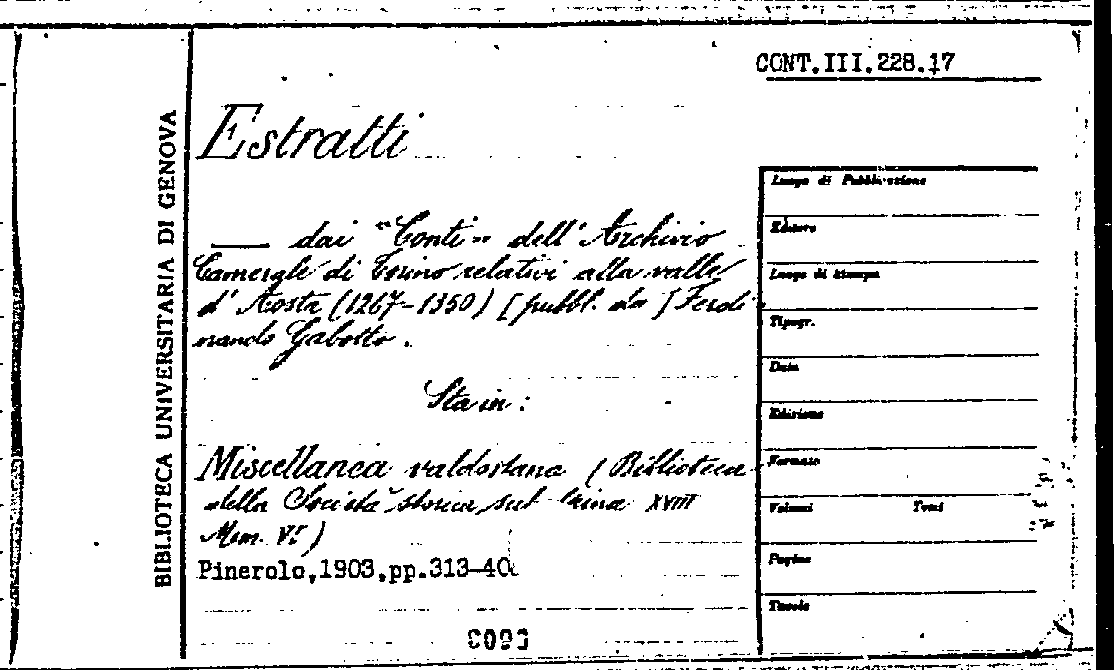 CONT.III.228.17
BIBLIOTECA UNIVERSITARIA DI GENOVA
Estratti
—— dai "Conti" dell'Archivio
Camerale di Torino relativi alla valle
d'Aosta (1267-1350) [pubbl. da] Ferdi-
nando Gabotto.
Sta in:
Miscellanea valdostana (Biblioteca
della Società storica subalpina XVIII
Pinerolo,1903,pp.313-40
Luogo di Pubblicazione
Editore
Luogo di stampa
Tipogr.
Data
Edizione
Formato
Volumi Tomi
Pagine
Tavole